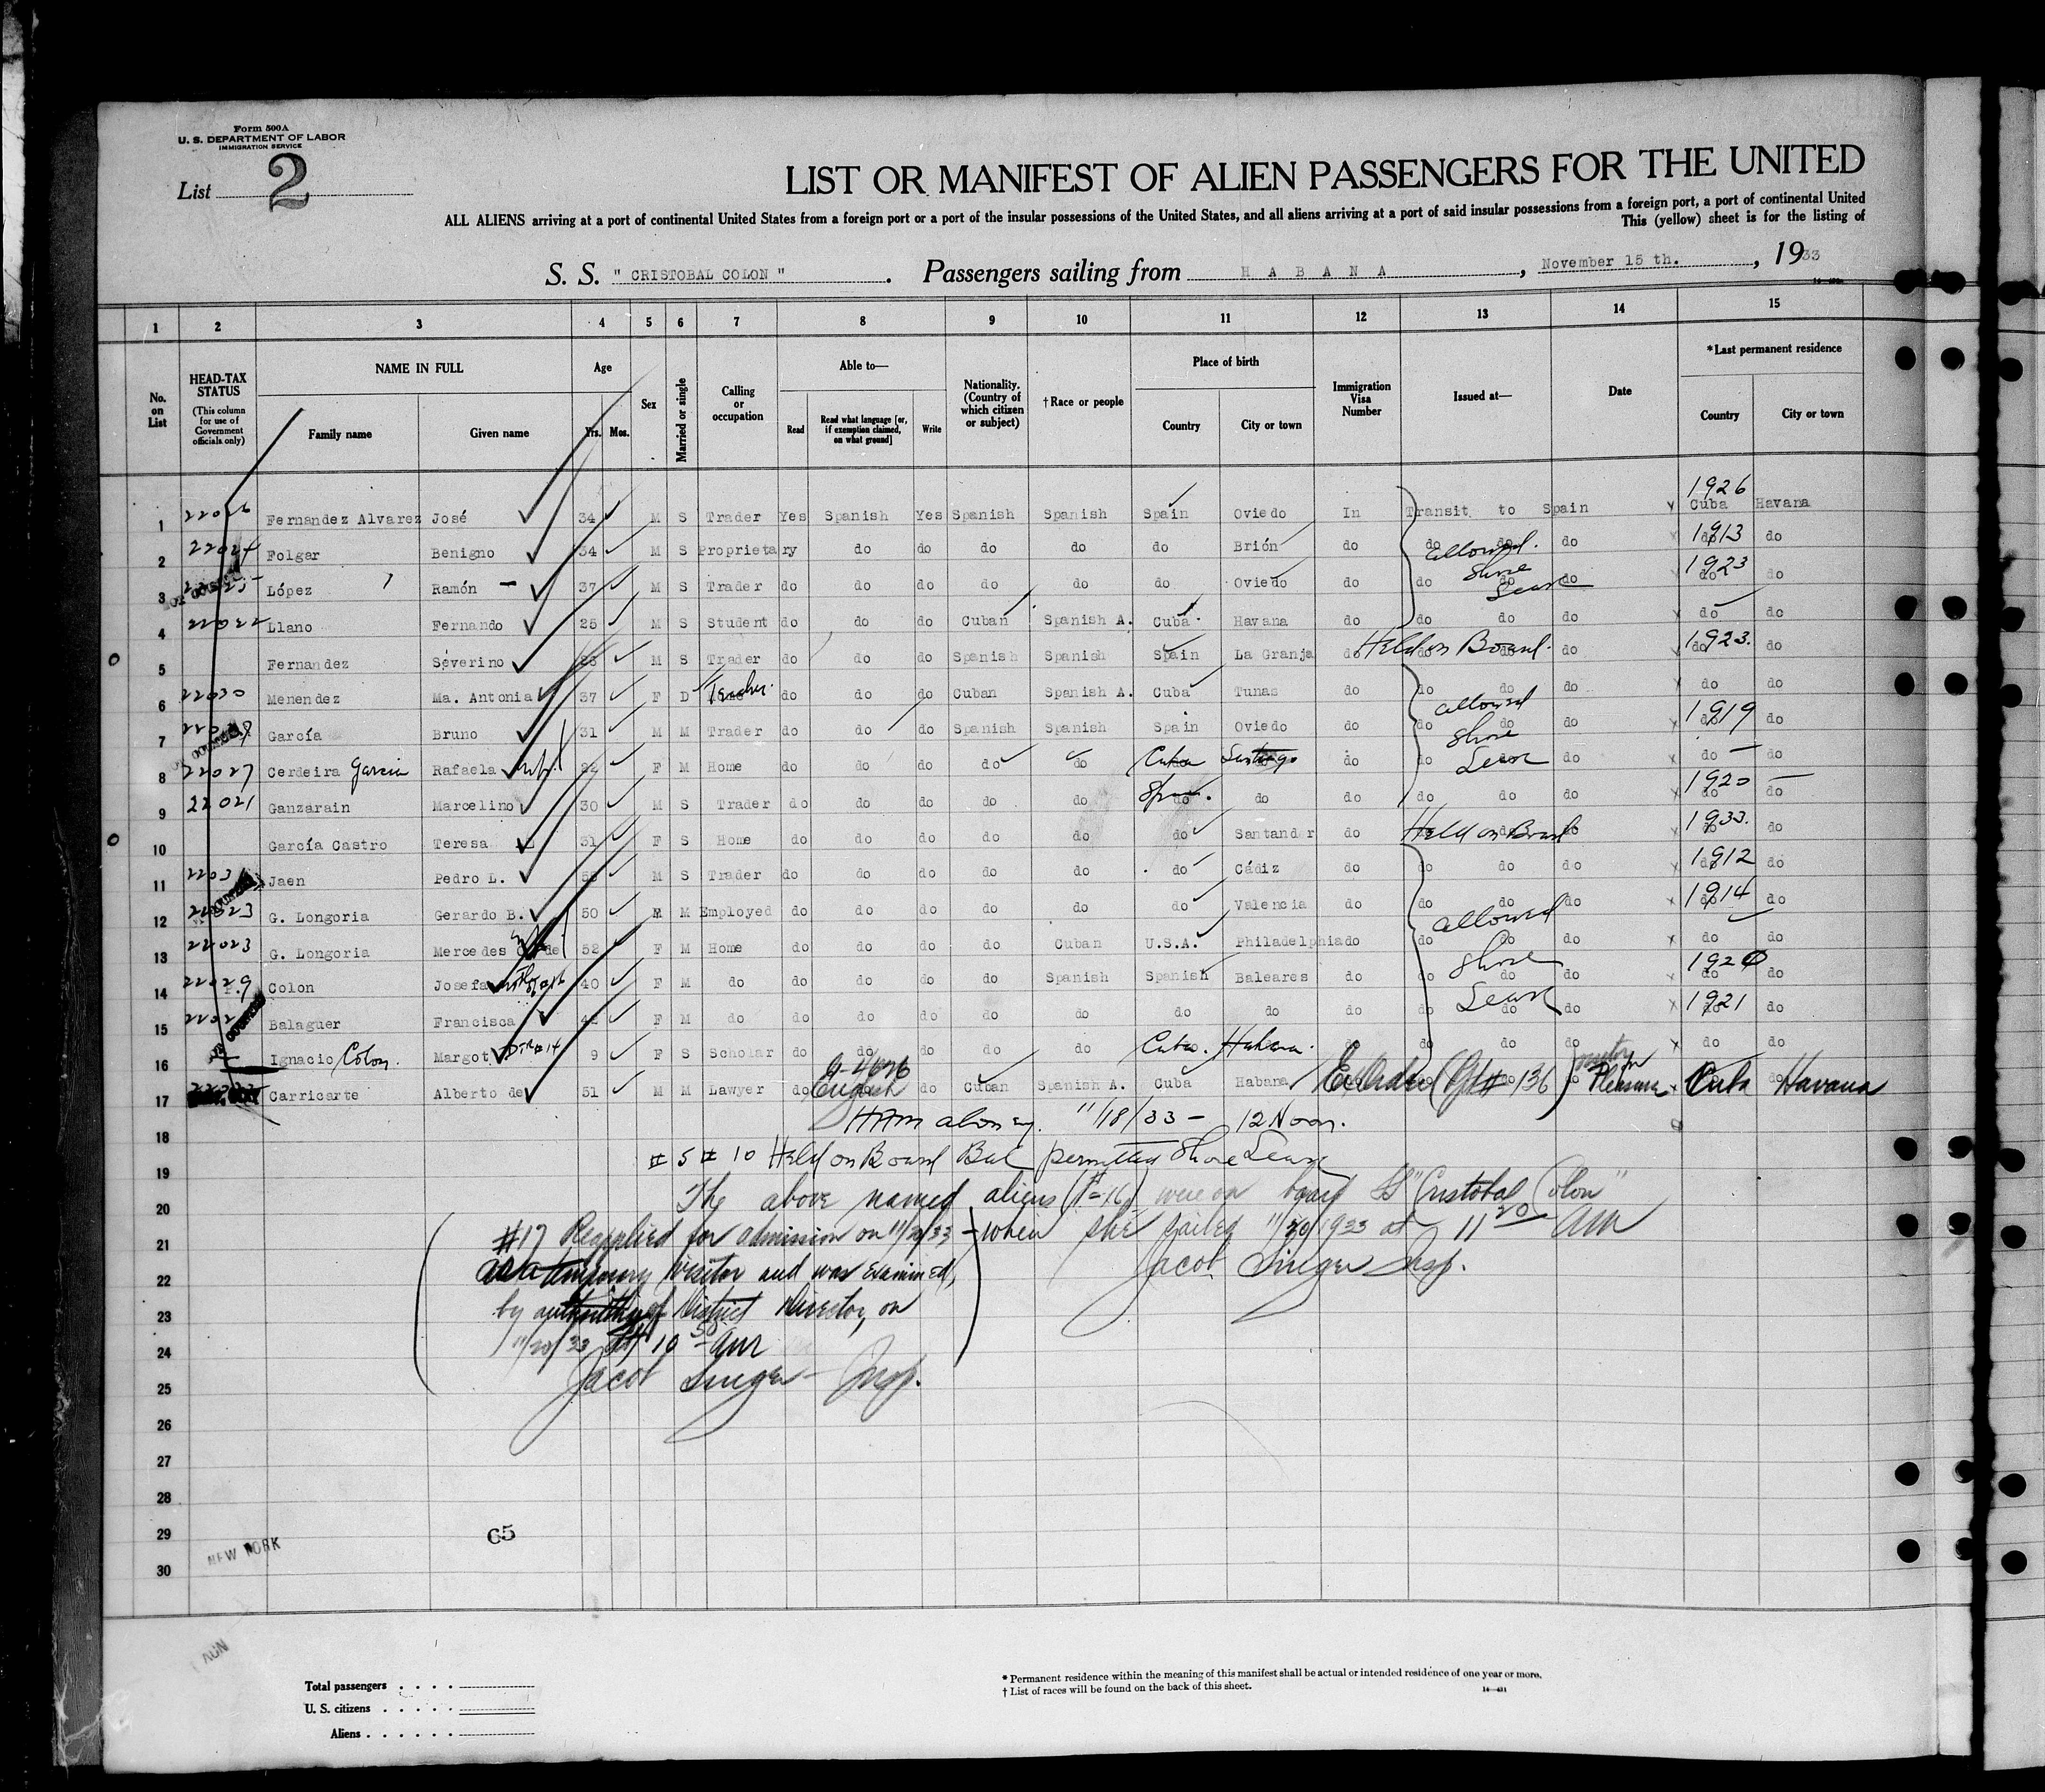 Form 500A
U. S. DEPARTMENT OF LABOR
IMMIGRATION SERVICE
List 2
LIST OR MANIFEST OF ALIEN PASSENGERS FOR THE UNITED
ALL ALIENS arriving at a port of continental United States from a foreign port or a port of the insular possessions of the United States, and all aliens arriving at a port of said insular possessions from a foreign port, a port of continental United
This (yellow) sheet is for the listing of
S. S. " CRISTOBAL COLON " . Passengers sailing from H A B A N A , November 15 th. , 1933
1 2 3 4 5 6 7 8 9 10 11 12 13 14 15
No. on List
HEAD-TAX STATUS (This column for use of Government officials only)
NAME IN FULL
Family name Given name
Age
Yrs. Mos.
Sex
Married or single
Calling or occupation
Able to—
Read Read what language [or, if exemption claimed, on what ground] Write
Nationality. (Country of which citizen or subject)
†Race or people
Place of birth
Country City or town
Immigration Visa Number
Issued at—
Date
*Last permanent residence
Country City or town
1926
1 Fernandez Alvarez José 34 M S Trader Yes Spanish Yes Spanish Spanish Spain Oviedo In Transit to Spain Cuba Havana
2 22024 Folgar Benigno 34 M S Proprietary do do do do do Brión do do do do 1913 do do
allowed Shore Leave
3 López Ramón 37 M S Trader do do do do do do Oviedo do do do do 1923 do do
4 22022 Llano Fernando 25 M S Student do do do Cuban Spanish A. Cuba Havana do do do do do do
5 Fernandez Séverino M S Trader do do do Spanish Spanish Spain La Granja do Held on Board. do do do 1923. do do
6 22030 Menendez Ma. Antonia 37 F D Teacher do do do Cuban Spanish A. Cuba Tunas do do do do do do
allowed Shore Leave
7 García Bruno 31 M M Trader do do do Spanish Spanish Spain Oviedo do do do do 1919 do do
8 22027 Cerdeira Garcia Rafaela F M Home do do do do do Cuba Santiago do do do do
9 22021 Ganzarain Marcelino 30 M S Trader do do do do do Spain. do do do do do 1920 do do
10 García Castro Teresa 31 F S Home do do do do do do Santander do Held on Board do 1933. do do
11 Jaen Pedro L. M S Trader do do do do do do Cádiz do do do do 1912 do do
12 22023 G. Longoria Gerardo B. 50 M M Employed do do do do do do Valencia do do do do 1914 do do
allowed Shore Leave
13 22023 G. Longoria Mercedes 52 F M Home do do do do Cuban U.S.A. Philadelphia do do do do do do
14 22029 Colon Josefa 40 F M do do do do do Spanish Spanish Baleares do do do do 1920 do do
15 Balaguer Francisca 42 F M do do do do do do do do do do do do 1921 do do
16 Ignacio Colon. Margot 9 F S Scholar do do do do do Cuba. Habana. do do do do do do
17 Carricarte Alberto de 51 M M Lawyer do English do Cuban Spanish A. Cuba Habana Ex Order (136) Pleasure Cuba Havana
18 11/18/33 - 12 Noon.
19 # 5 # 10 Held on Board But permitted Shore Leave
20 The above named aliens (1-16) were on board SS "Cristobal Colon"
21 when she sailed 11/20/1933 at 11 20 AM
22 Jacob Singer Insp.
#17 Reapplied for admission on 11/20/33
as a temporary visitor and was examined,
23 by authority of District Director, on
24 11/20/33 at 10 50 am
25 Jacob Singer Insp.
26
27
28
29 65
NEW YORK
30
Total passengers
U. S. citizens
Aliens
* Permanent residence within the meaning of this manifest shall be actual or intended residence of one year or more.
† List of races will be found on the back of this sheet.